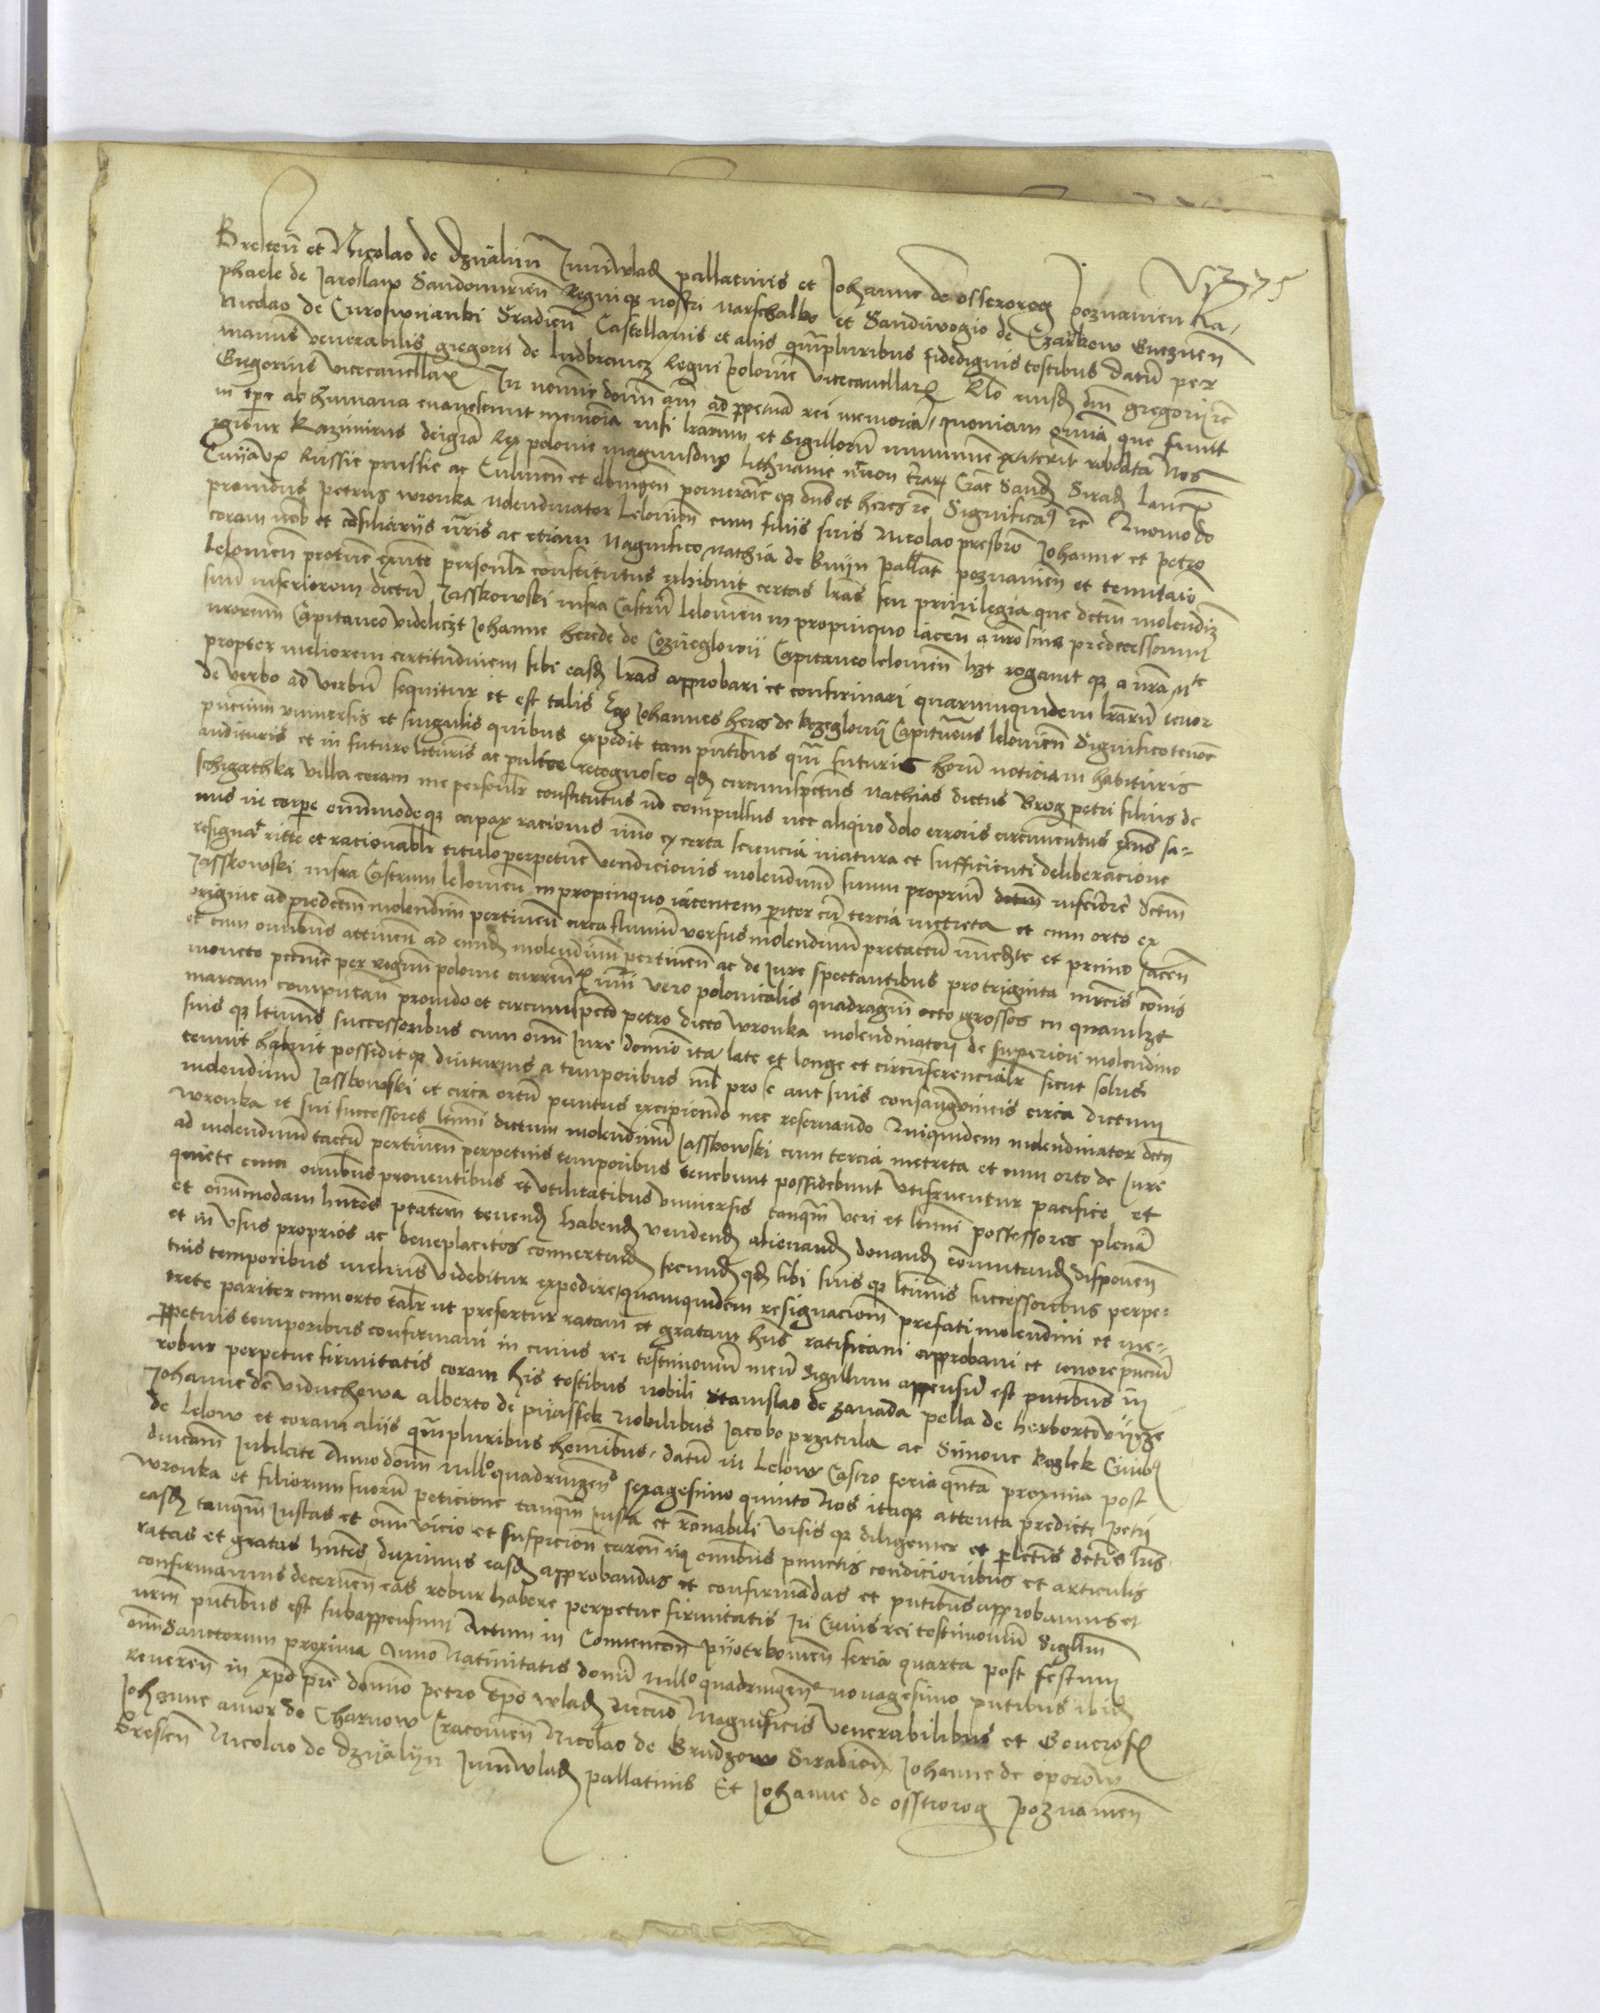 Bresten et Nicolao de dzyalin Juniwladi pallatinis et Johanne de ostrorog poznanien Ra-
phaele de Jaroslaw Sandomirien Regnique nostri Marschalko et Sandiwogio de Czarkow Gneznen
Nicolao de Curoswianki Sradien Castellanis et aliis quampluribus fidedignis testibus datum per
manus venerabilis gregorii de ludbrancz Regni polonie vicecancellar Rlo eiusd dni gregorii
Gregorius vicecancellar In nomine domini am ad perpetuam rei memoriam quoniam omnia que fiunt
in tpe ab humana evanescunt memoria nisi lrarum et sigillorum munimine extiterit roborata Nos
igitur Kazimirus dei gra Rex polonie magnusdux lithvanie necnon trar Crac Sand Sirad Lancic
Cuyavie Russie prussie ac Culmen et elbingen pomeranie dns et heres Significamus Quomodo
providus petrus wronka molendinator Leloviens cum filiis suis Nicolao presbro Johanne et petro
coram nob et consiliariis nris ac etiam Magnifico Mathia de Bnyn pallat poznanien et tenutario
Leloviens protunc existente personlr constitutus exhibuit certas lras seu privilegia que dictum molendinum
suum inferiorem dictum Jasskowski infra Castrum leloviens in propinquo iacens a
nrorum Capitaneo videlicet Johanne herede de Cozieglowii Capitaneo leloviens rogavit
propter meliorem certitudinem sibi easd lras approbari et confirmari quarumquidem lrarum tenor
de verbo ad verbum sequitur et est talis Ego Johannes heres de Kozyglowy Capitaneus leloviens Significo tenore
universis et singulis quibus expedit tam pntibus quam futuris horum noticiam habituris
audituris et in futuro lecturis ac recognosco qd circumspectus Mathias dictus Brog petri filius de
schigathka villa coram me personlr constitutus no compulsus nec aliquo dolo erroris circumventus sa-
nus in corpe omnimodeque capax racionis imo ex certa sciencia matura et sufficienti deliberacione
resignavit rite et racionabilr titulo perpetue vendicionis molendinum suum proprium inferiorem dictum
Jasskowski infra Castrum leloviens in propinquo iacentem pariter cum tercia metreta et cum orto ex
origine ad predictum molendinum pertinen circa fluvium versus molendinum pretactum et primo iacen
et cum omnibus attinen ad eundem molendinum pertinen ac de Jure spectantibus pro triginta mrcis comis
monete pecunie per regnum polonie curren numi vero polonicalis quadraginta octo grossos in quamlibet
marcam computan provido et circumspecto petro dicto wronka molendinatori de superiori molendino
suis que ltimis successoribus cum omni Jure dominio ita late et longe et circumferencialr sicut solus
tenuit habuit possedit que diuturnis a temporibus nil pro se aut suis consanguineis circa dictum
molendinum Jasskowski et circa ortum penitus excipiendo nec reservando Quiquidem molendinator dictus
wronka et sui successores ltimi dictum molendinum Jasskowski cum tercia metreta et cum orto de Jure
ad molendinum tactum pertinen perpetuis temporibus tenebunt possidebunt utifruentur pacifice et
quiete cum omnibus proventibus et utilitatibus universis tanquam veri et ltimi possessores plenam
et omnimodam hntes ptatem tenend habend vendend alienand donand commutand disponen
et in usus proprios ac beneplacitos convertend secund qd sibi suis que ltimis successoribus perpe-
tuis temporibus melius videbitur expedire quamquidem resignacionem prefati molendini et me-
trete pariter cum orto talr ut prefertur ratam et gratam hns ratificavi approbavi et tenore pncium
ppetuis temporibus confirmavi in cuius rei testimonium meum Sigillum appensum est pntibus in
robur perpetue firmitatis coram his testibus nobili Stanislao de zavada pella de herbortowycze
Johanne de viduchowa alberto de pyassek Nobilibus Jacobo przitula ac Simone Kozlek Civibus
de Lelow et coram aliis quampluribus hominibus. datum in Lelow Castro feria quinta proxima post
ducam Jubilate Anno domini millo quadringeno sexagesimo quinto Nos itaque attenta predicti petri
wronka et filiorum suorum peticione tanquam iusta et ronabili visis que diligenter et plectis dictis lris
easd tanquam Justas et omni vicio et suspicione caren in omnibus punctis condicionibus et articulis
ratas et gratas hntes duximus easd approbandas et confirmandas et pntibus approbamus et
confirmamus decernen eas robur habere perpetue firmitatis In Cuius rei testimonium Sigillum
nrm pntibus est subappensum Actum in Convencon pyotrkovien feria quarta post festum
omnium Sanctorum proxima Anno Nativitatis domini millo quadringeno nonagesimo pntibus ibid
Reveren in xpo pre domino petro Epo wlad necnon Magnificis Venerabilibus et Generosis
Johanne amor de Tharnow Cracovien Nicolao de Brudzow Siradien Johanne de oporow
Bresten Nicolao de dzyalyn Juniwlad pallatinis Et Johanne de osstrorog poznanien